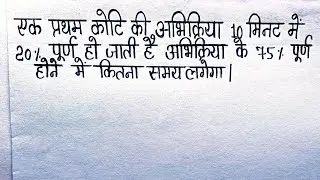 एक प्रथम कोटि की अभिक्रिया 10 मिनट में
20% पूर्ण हो जाती है अभिक्रिया के 75% पूर्ण
होने में कितना समय लगेगा।